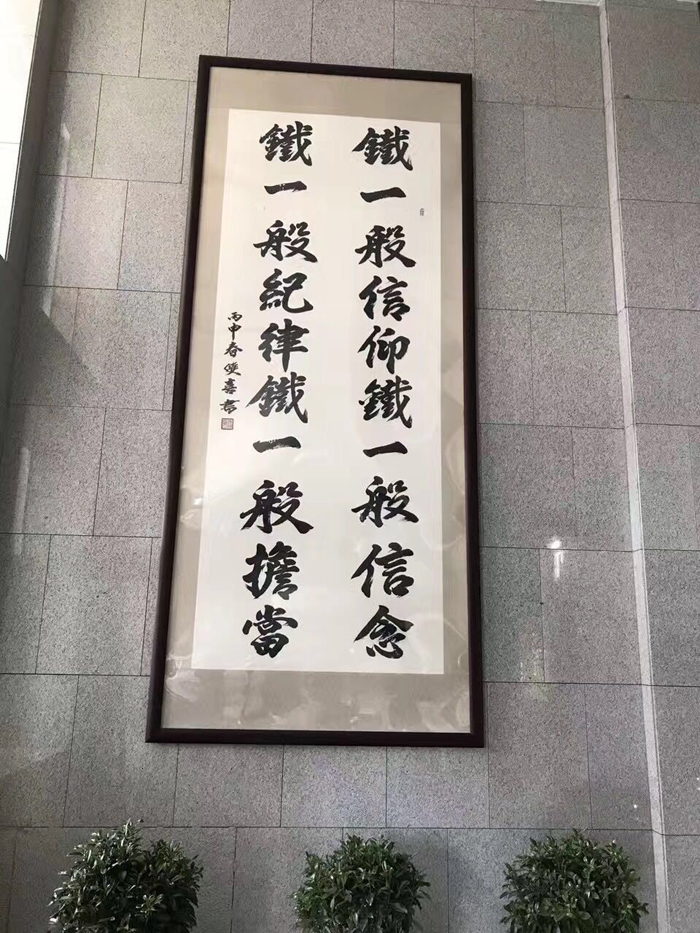 鐵一般信仰鐵一般信念
鐵一般紀律鐵一般擔當
丙申春雙喜書